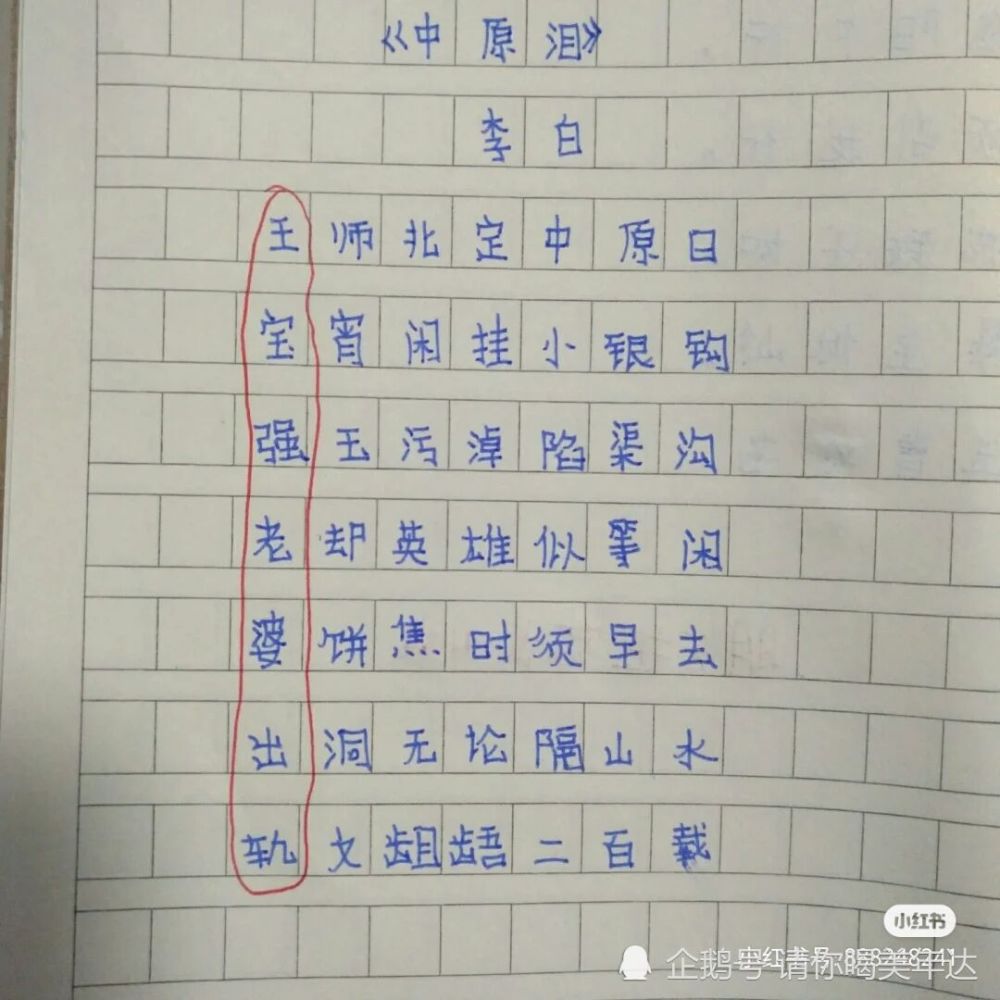 《中原泪》
李白
王师北定中原日
宝宵闲挂小银钩
强玉污淖陷渠沟
老却英雄似等闲
婆饼焦时须早去
出洞无论隔山水
轨文龃龉二百载
小红书
企鹅号 请你喝美年达